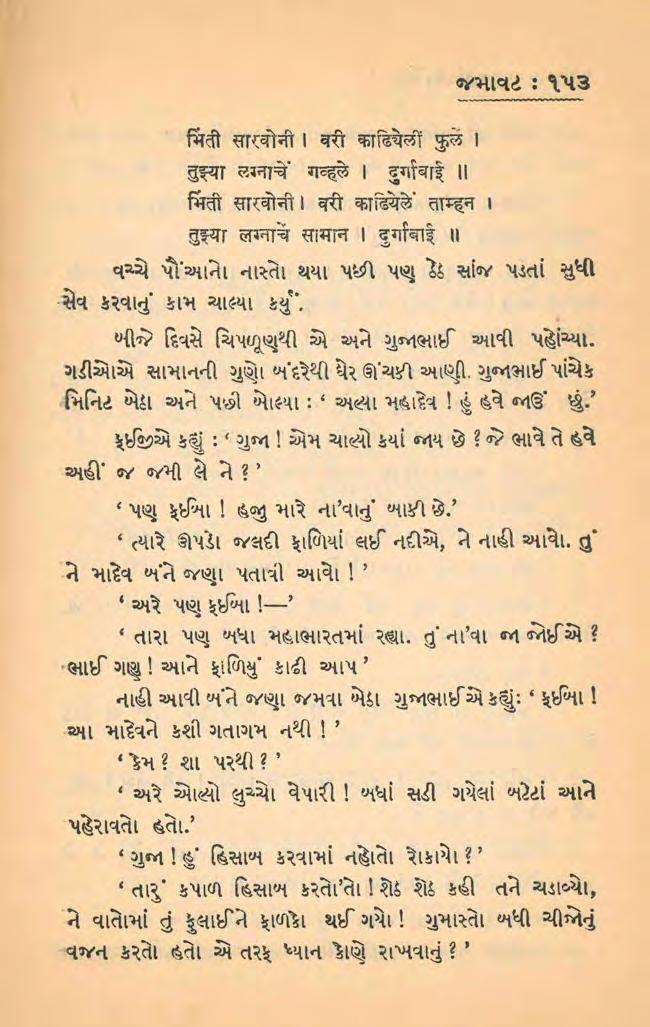 જમાવટ : ૧૫૩
भिंती सारवोनी। वरी काढियेलीं फुलें ।
तुझ्या लग्नाचें गव्हले । दुर्गाबाई ॥
भिंती सारवोनी। वरी काढियेलें ताम्हन ।
तुझ्या लग्नाचें सामान । दुर्गाबाई ॥
વચ્ચે પૌંઆનો નાસ્તો થયા પછી પણ ઠેઠ સાંજ પડતાં સુધી
સેવ કરવાનું કામ ચાલ્યા કર્યું.
બીજે દિવસે ચિપળૂણથી એ અને ગુજાભાઈ આવી પહોંચ્યા.
ગડીઓએ સામાનની ગુણો બંદરેથી ઘેર ઊંચકી આણી. ગુજાભાઈ પાંચેક
મિનિટ બેઠા અને પછી બોલ્યા : ‘ અલ્યા મહાદેવ ! હું હવે જાઉં છું.’
ફઈજીએ કહ્યું : ‘ ગુજા ! એમ ચાલ્યો કયાં જાય છે ? જે ભાવે તે હવે
અહીં જ જમી લે ને ? ’
‘ પણ ફઈબા ! હજી મારે ના’વાનું બાકી છે.’
‘ ત્યારે ઊપડો જલદી ફાળિયાં લઈ નદીએ, ને નાહી આવો. તું
ને માદેવ બંને જણા પતાવી આવો ! ’
‘ અરે પણ ફઈબા !—’
‘ તારા પણ બધા મહાભારતમાં રહ્યા. તું ના’વા જા જોઈએ ?
ભાઈ ગણુ ! આને ફાળિયું કાઢી આપ ’
નાહી આવી બંને જણા જમવા બેઠા ગુજાભાઈએ કહ્યું: ‘ ફઈબા !
આ માદેવને કશી ગતાગમ નથી ! ’
‘ કેમ ? શા પરથી ? ’
‘ અરે ઓલ્યો લુચ્ચો વેપારી ! બધાં સડી ગયેલાં બટેટાં આને
પહેરાવતો હતો.’
‘ ગુજા ! હું હિસાબ કરવામાં નહોતો રોકાયો ? ’
‘ તારું કપાળ હિસાબ કરતો’તો ! શેઠ શેઠ કહી તને ચડાવ્યો,
ને વાતોમાં તું ફુલાઈને ફાળકો થઈ ગયો ! ગુમાસ્તો બધી ચીજોનું
વજન કરતો હતો એ તરફ ધ્યાન કોણે રાખવાનું ? ’